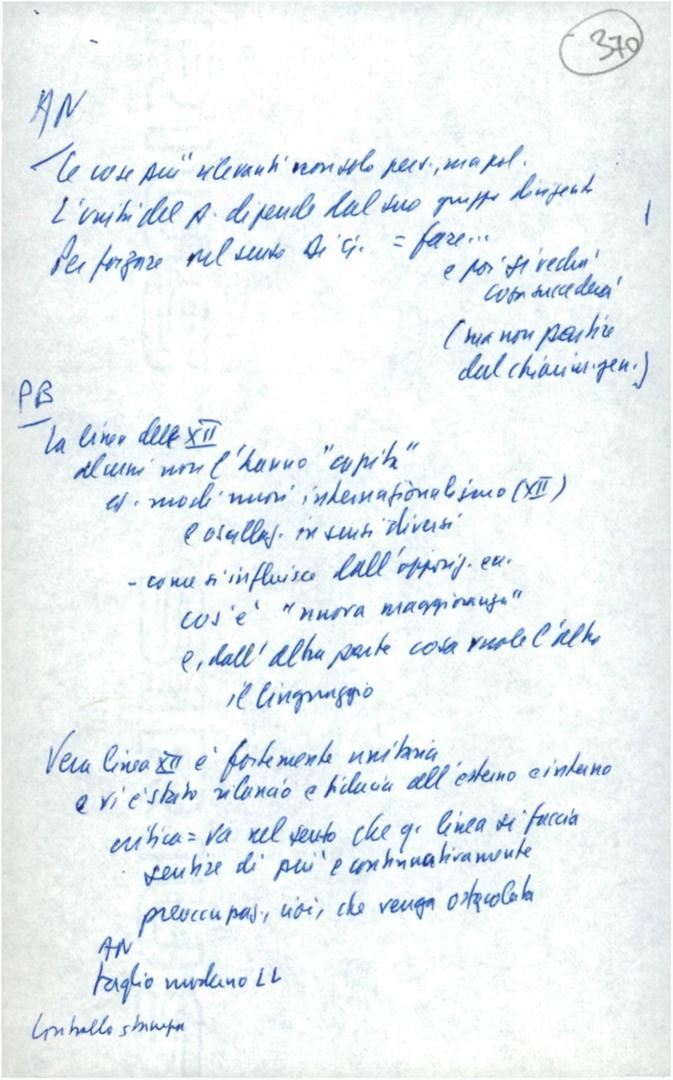 370
AN
le cose più rilevanti non solo pers., ma pol.
L'unità del p. dipende dal suo gruppo dirigente
Per forzare nel senso di = fare...
e poi si vedrà
cosa succederà
(ma non partire
dal chiarim. gen.)
PB
La linea delle XII
alcuni non l'hanno "capita"
es. modi nuovi internazionalismo (XII)
in sensi diversi
- come si influisce dall'
cos'è "nuova maggioranza"
e, dall'altra parte cosa vuole l'altro
il linguaggio
Vera linea XII è fortemente unitaria
e vi è stato rilancio e fiducia all'esterno e interno
critica = va nel senso che q. linea si faccia
sentire di più e continuativamente
preoccupaz., cioè, che venga ostacolata
AN
taglio moderno LL
Controllo stampa